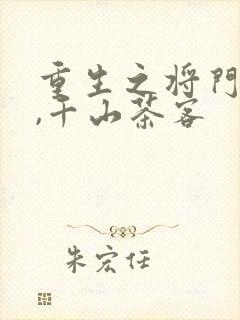 重生之将门
,千山茶客
朱宏任